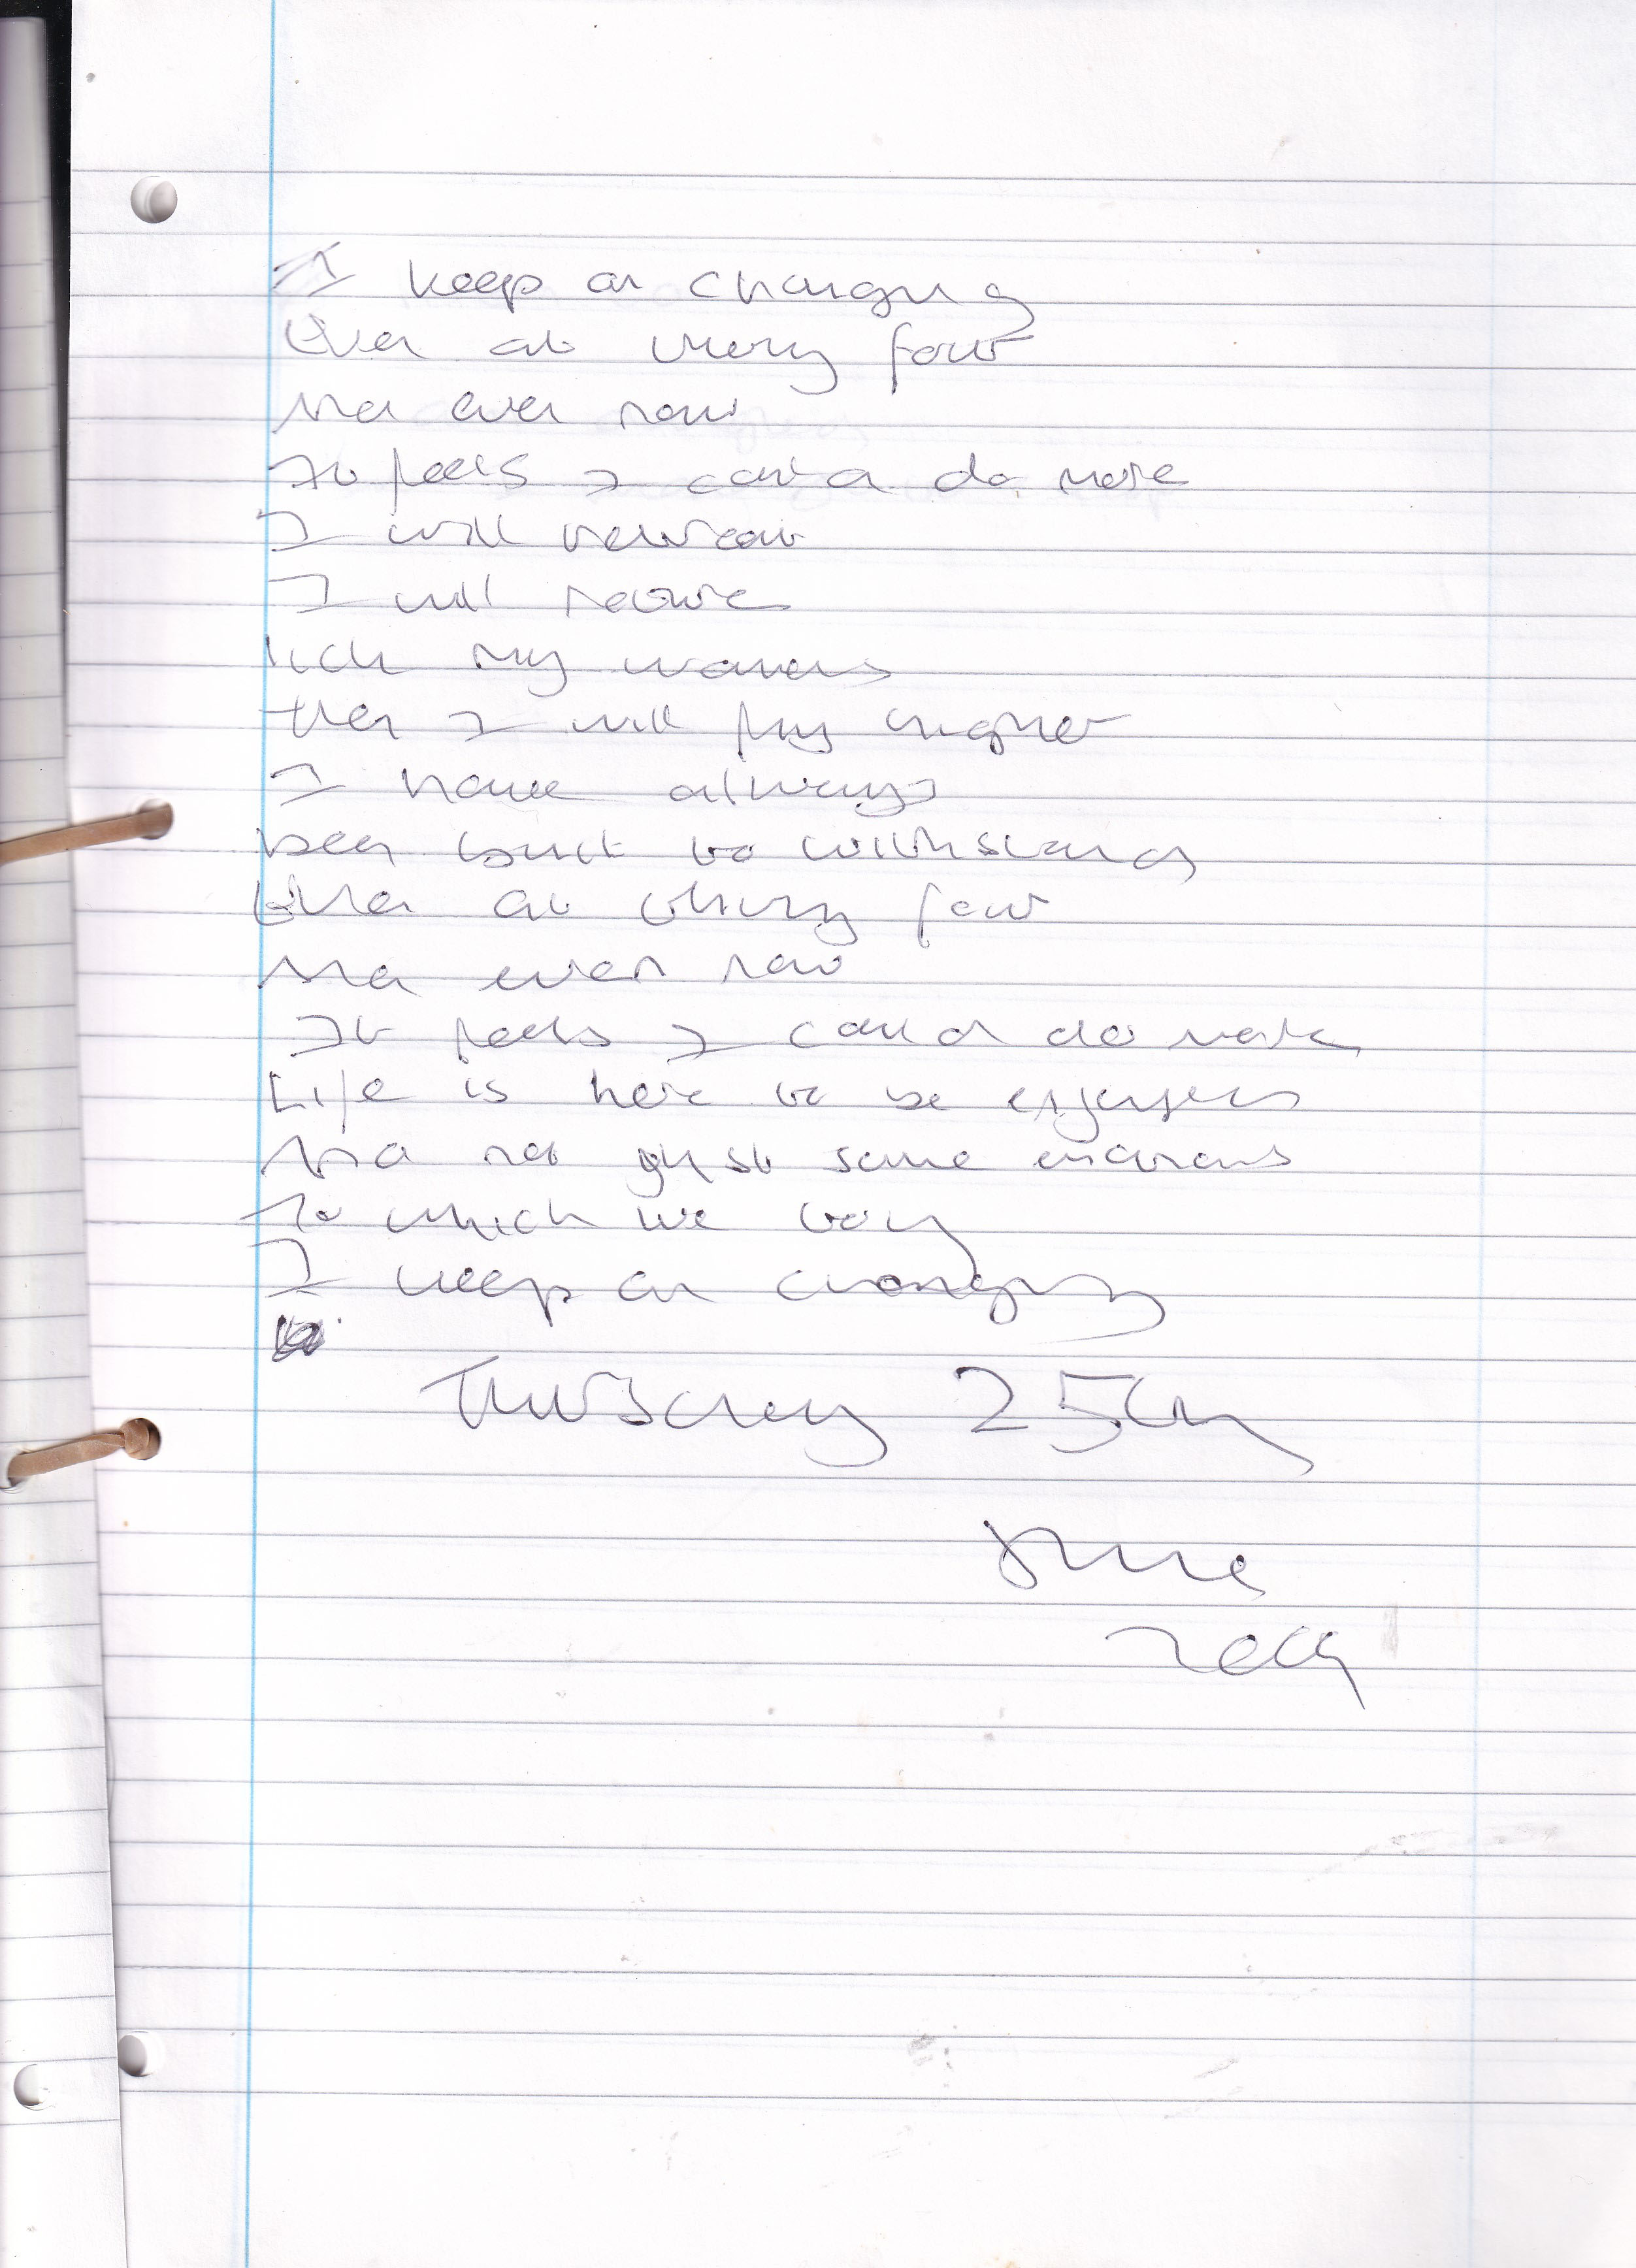 I keep on changing
Even at thirty four
And even now
It feels I could do more
I will retreat
I will retire
lick my wounds
then I will fly higher
I have always
been built to withstand
Even at thirty four
And even now
It feels I could do more
Life is here to be enjoyed
And not just some
To which we
I keep on changing
Thursday 25th
June